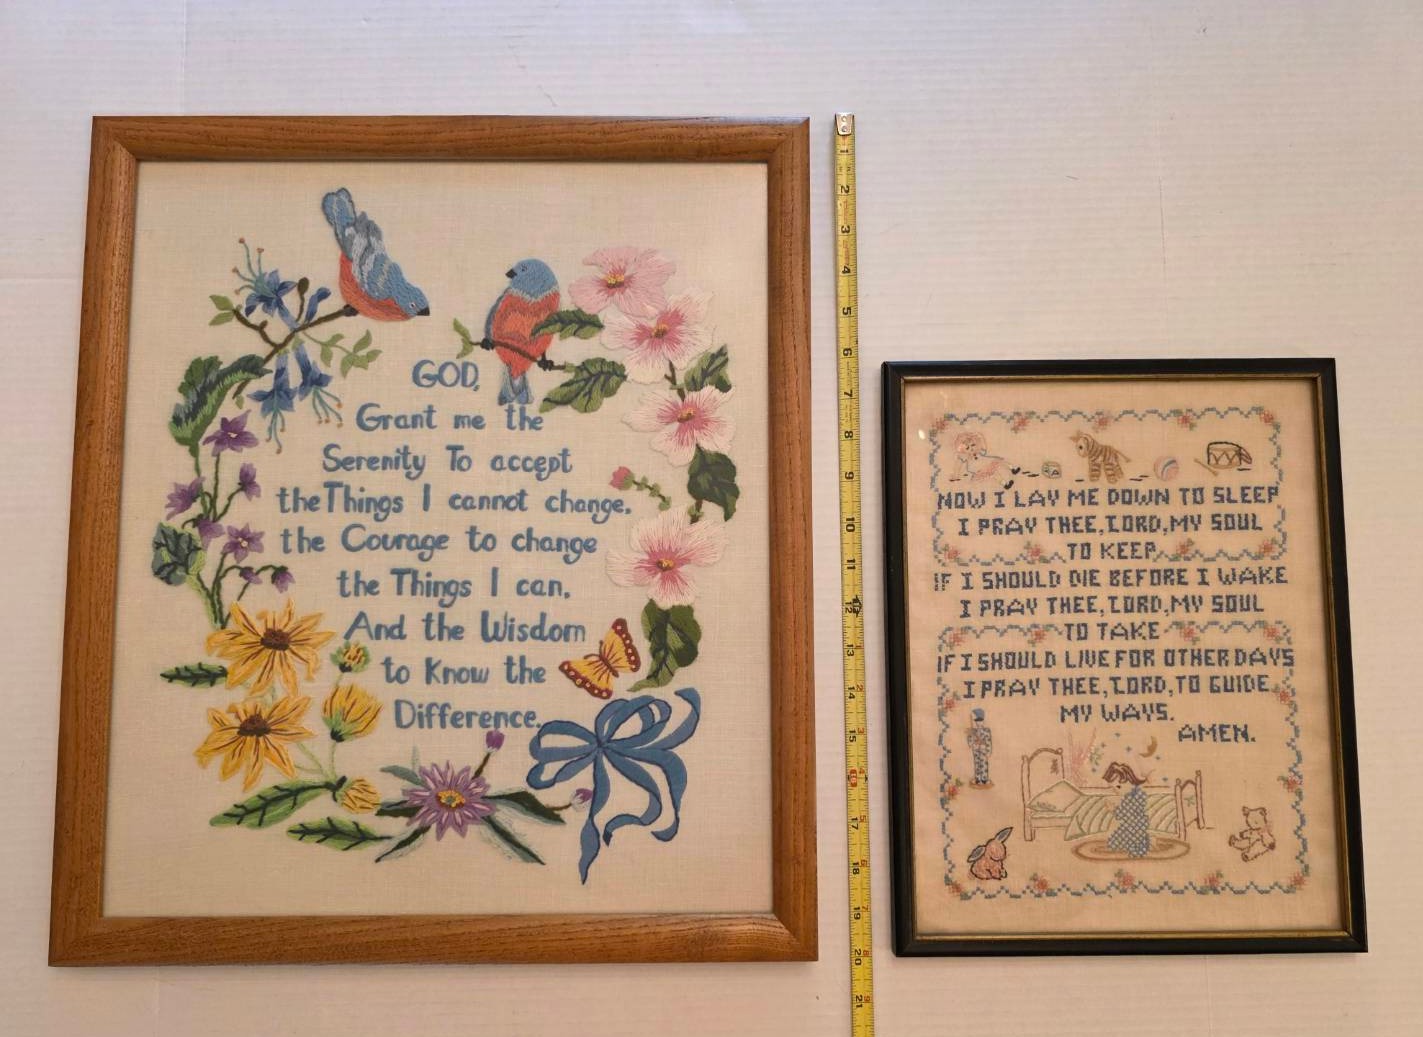 GOD,
Grant me the
Serenity To accept
the Things I cannot change,
the Courage to change
the Things I can,
And the Wisdom
to Know the
Difference.
1
2
3
4
5
6
7
8
9
10
11
12
13
14
15
17
18
19
20
21
NOW I LAY ME DOWN TO SLEEP
I PRAY THEE, LORD, MY SOUL
TO KEEP
IF I SHOULD DIE BEFORE I WAKE
I PRAY THEE, LORD, MY SOUL
TO TAKE
IF I SHOULD LIVE FOR OTHER DAYS
I PRAY THEE, LORD, TO GUIDE
MY WAYS.
AMEN.